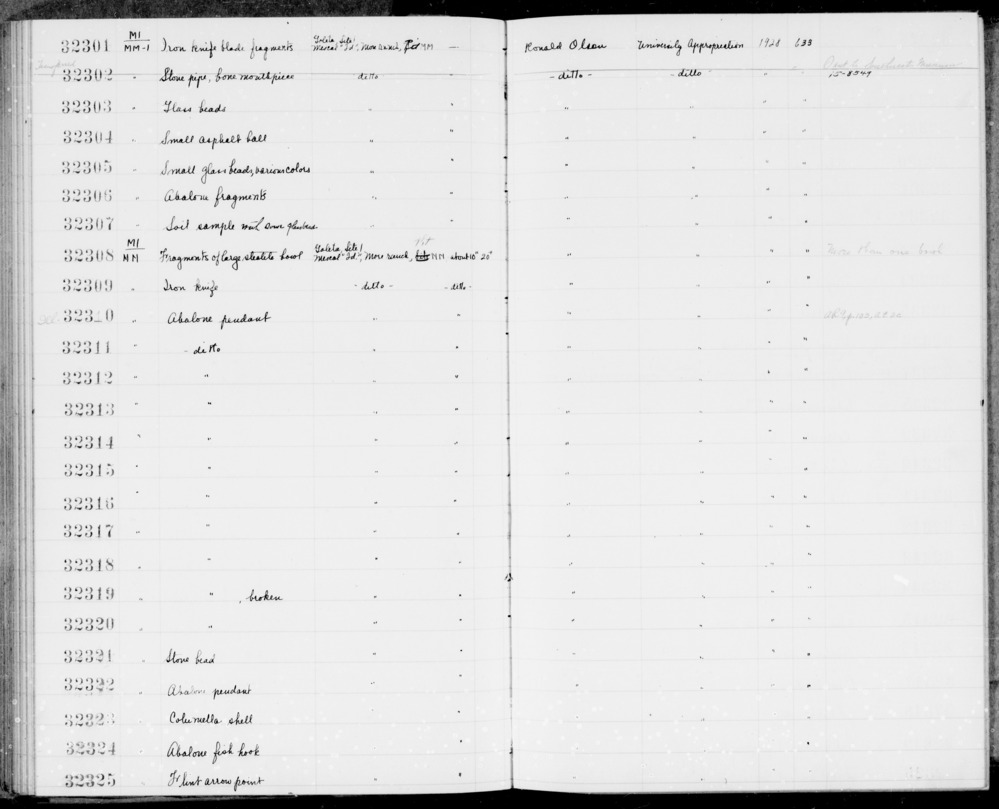 32301 MI MM-1 Iron knife blade fragments Goleta, Site! Mescal "Id.", More ranch, MM — Ronald Olson University Appropriation 1928 633
Transferred
32302 " Stone pipe, bone mouthpiece ditto " - ditto - - ditto - " " 15-8549
32303 " Glass beads " " " " " "
32304 " Small asphalt ball " " " " " "
32305 " Small glass beads, various colors " " " " " "
32306 " Abalone fragments " " " " " "
32307 " Soil sample with some " " " " " "
32308 MI MM Fragments of large steatite bowl Goleta, Site! Mescal "Id.", More ranch, Pit MM about 10" 20" " " " " More than one bowl
32309 " Iron knife - ditto - - ditto - " " " "
32310 " Abalone pendant " " " " " "
32311 " - ditto " " " " " "
32312 " " " " " " " "
32313 " " " " " " " "
32314 " " " " " " " "
32315 " " " " " " " "
32316 " " " " " " " "
32317 " " " " " " " "
32318 " " " " " " " "
32319 " " , broken " " " " " "
32320 " " " " " " " "
32321 " Stone bead " " " " " "
32322 " Abalone pendant " " " " " "
32323 " Columella shell " " " " " "
32324 " Abalone fish hook " " " " " "
32325 " Flint arrow point " " " " " "